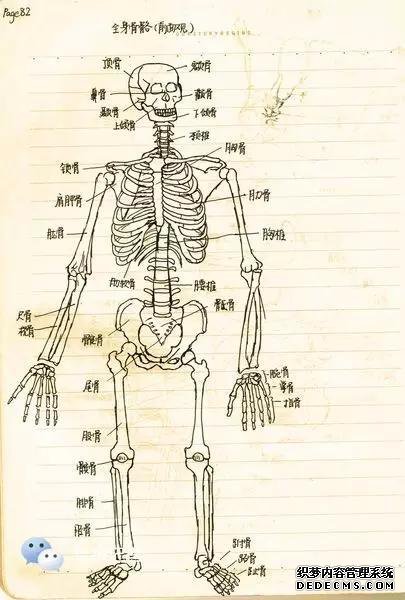 Page82
全身骨骼(前面观)
顶骨
额骨
鼻骨
颧骨
颞骨
下颌骨
上颌骨
颈椎
胸骨
锁骨
肩胛骨
肋骨
肱骨
胸椎
肋软骨
腰椎
尺骨
桡骨
腕骨
掌骨
指骨
尾骨
股骨
髌骨
腓骨
胫骨
跗骨
跖骨
趾骨
织梦内容管理系统
DEDECMS.COM